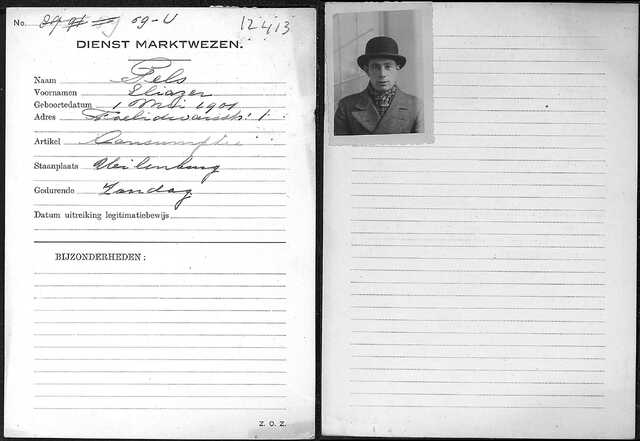 No. 69-U 12413
DIENST MARKTWEZEN.
Naam Pels
Voornamen Eliazer
Geboortedatum 1 Mei 1901
Adres 1
Artikel Consumptie
Staanplaats Uilenburg
Gedurende Zondag
Datum uitreiking legitimatiebewijs
BIJZONDERHEDEN:
Z. O. Z.